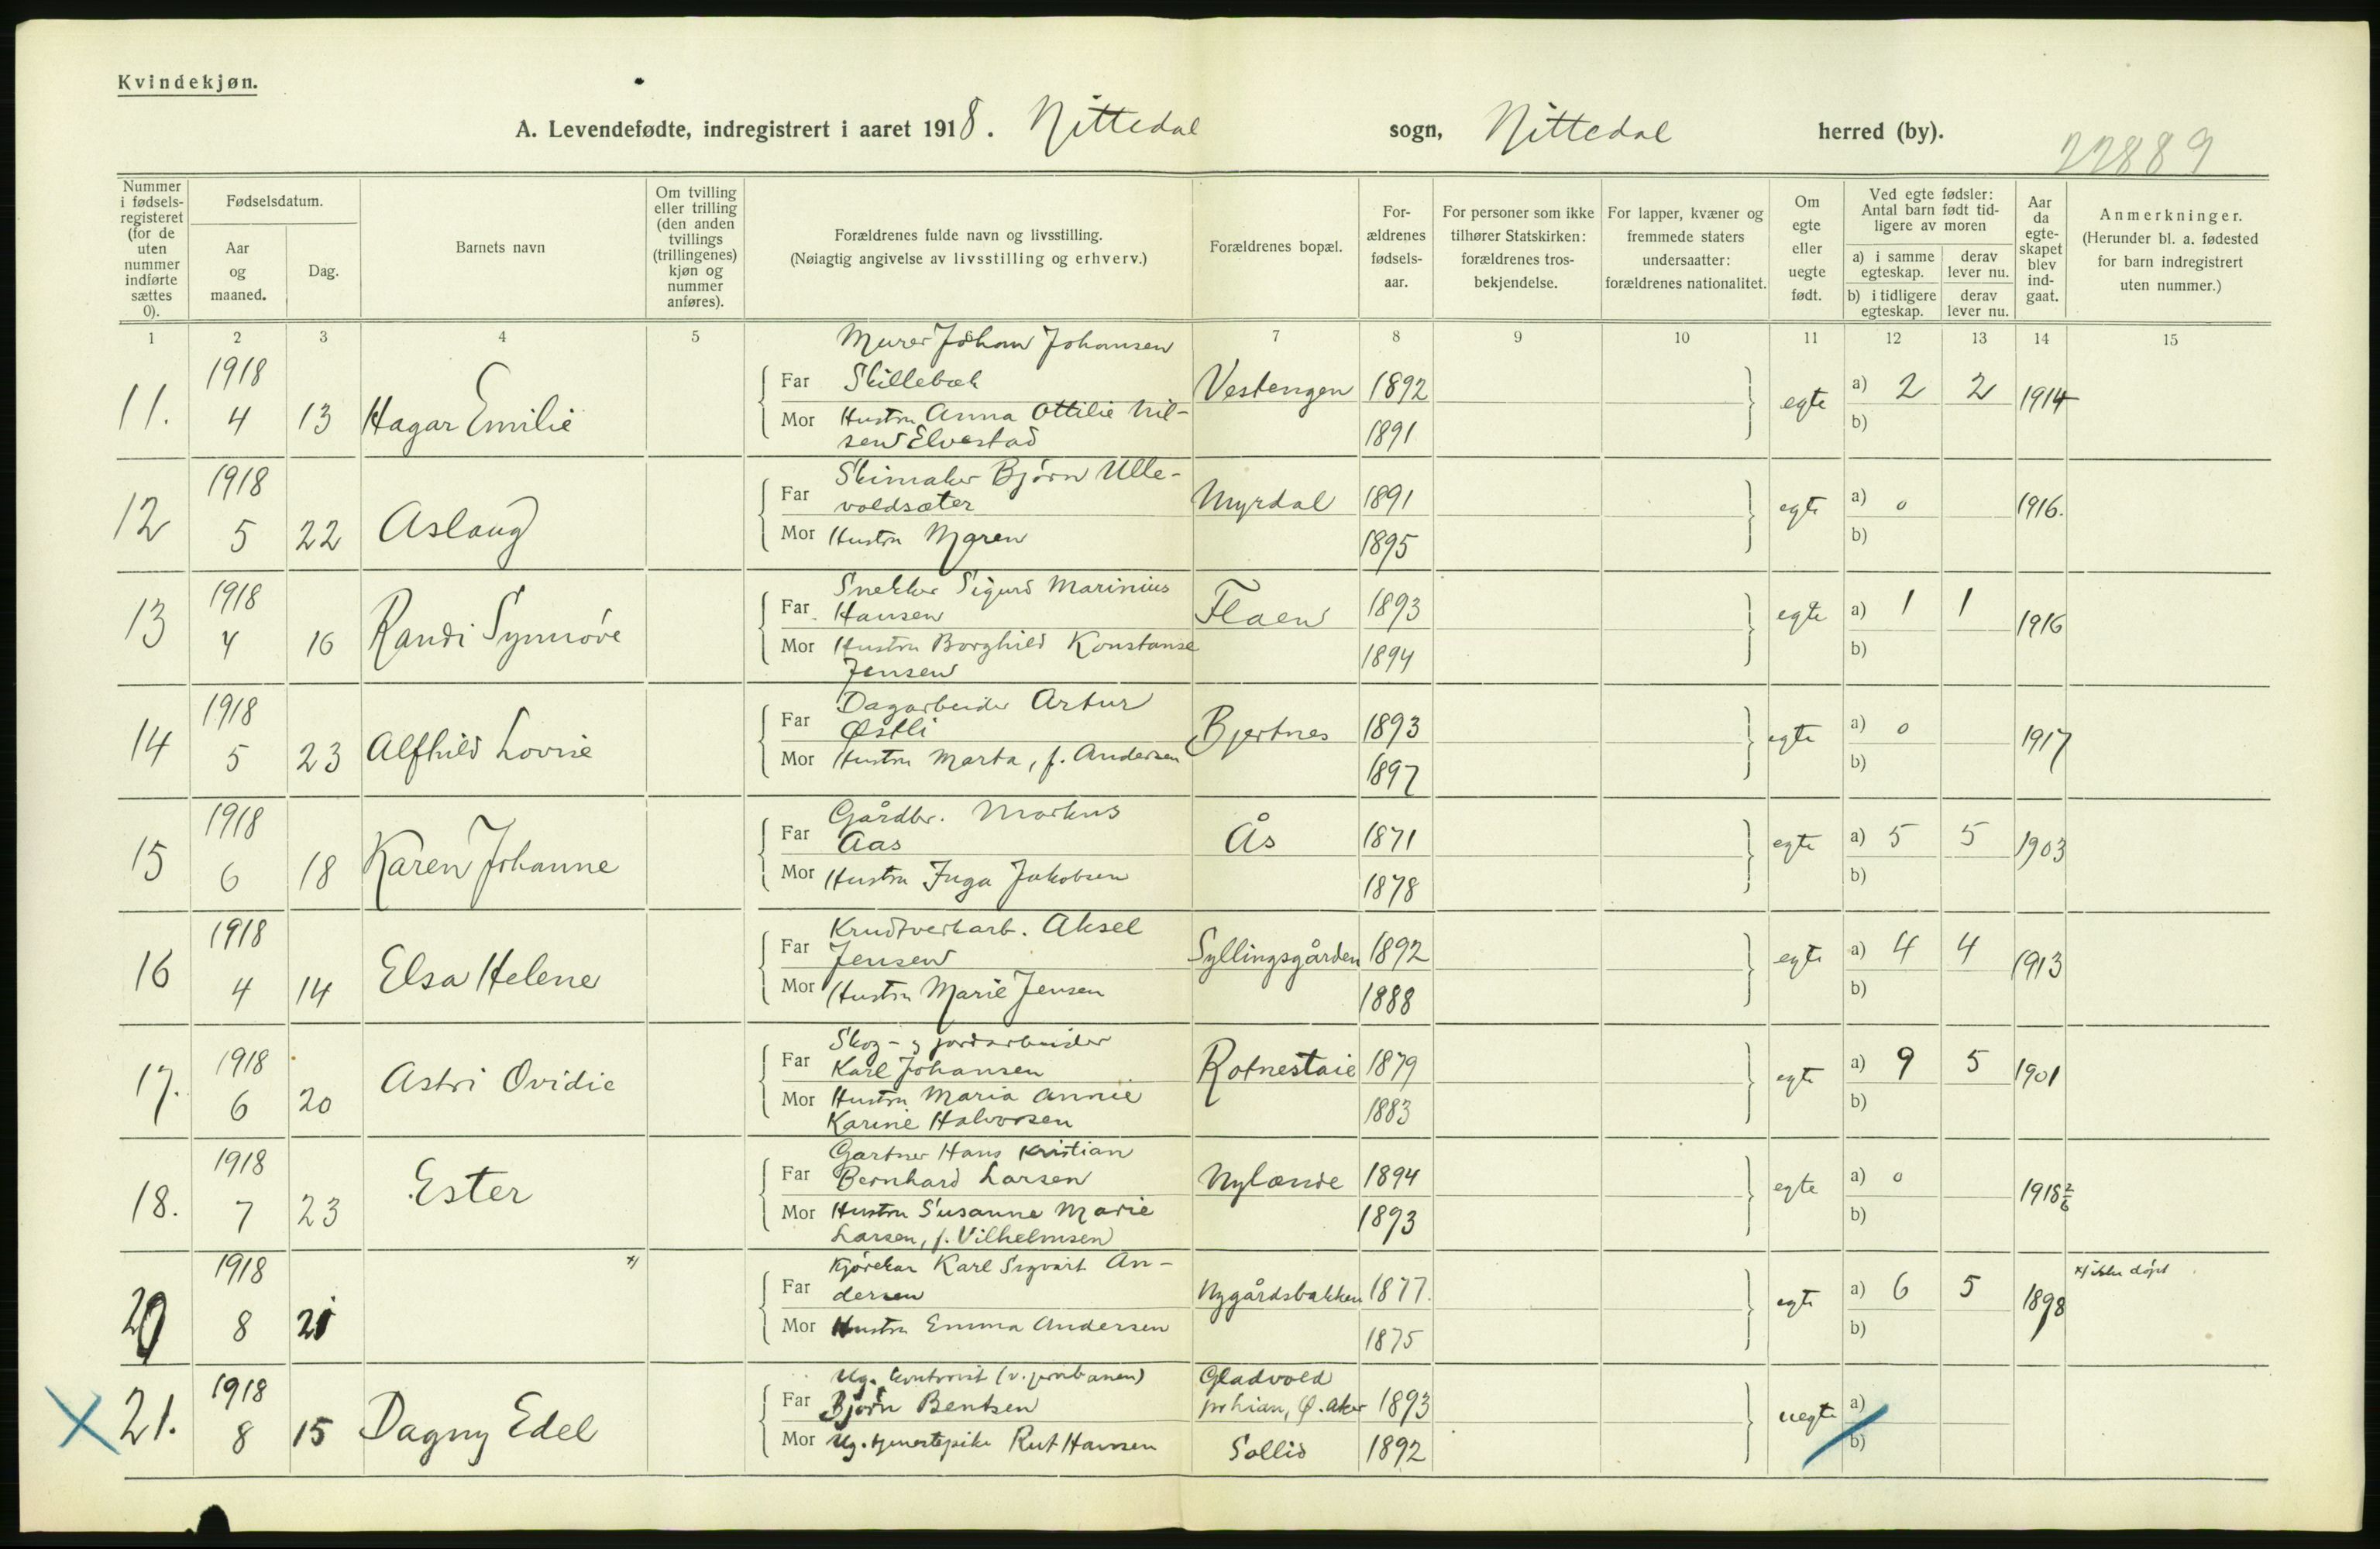 Kvindekjøn.
A. Levendefødte, indregistrert i aaret 1918. Nittedal sogn, Nittedal herred (by).
22889
Nummer i fødselsregisteret (for de uten nummer indførte sættes 0).
Fødselsdatum.
Aar og maaned.
Dag.
Barnets navn
Om tvilling eller trilling (den anden tvillings (trillingenes) kjøn og nummer anføres).
Forældrenes fulde navn og livsstilling.
(Nøiagtig angivelse av livsstilling og erhverv.)
Forældrenes bopæl.
Forældrenes fødselsaar.
For personer som ikke tilhører Statskirken: forældrenes trosbekjendelse.
For lapper, kvæner og fremmede staters undersaatter: forældrenes nationalitet.
Om egte eller uegte født.
Ved egte fødsler: Antal barn født tidligere av moren
a) i samme egteskap. derav lever nu.
b) i tidligere egteskap. derav lever nu.
Aar da egteskapet blev indgaat.
Anmerkninger.
(Herunder bl. a. fødested for barn indregistrert uten nummer.)
1 2 3 4 5 7 8 9 10 11 12 13 14 15
Murer Johan Johansen
1918
11. 4 13 Hagar Emilie
Far Skillebæk Vestengen 1892 egte a) 2 2 1914
Mor Hustru Anna Ottilie Nil-
sen Elvestad 1891 b)
Skimaker Bjørn Ulle-
1918
12 5 22 Aslaug
Far voldsæter Myrdal 1891 egte a) 0 1916.
Mor Hustru Maren 1895 b)
Snekker Sigurd Marinius
1918
13 4 16 Randi Synnøve
Far Hansen Flaen 1893 egte a) 1 1 1916
Mor Hustru Borghild Konstanse
Jensen 1894 b)
Dagarbeider Artur
1918
14 5 23 Alfhild Lovise
Far Østli Bjertnes 1893 egte a) 0 1917
Mor Hustru Marta, f. Andersen 1897 b)
Gårdbr. Markus
1918
15 6 18 Karen Johanne
Far Aas Ås 1871 egte a) 5 5 1903
Mor Hustru Inga Jakobsen 1878 b)
Krudtverkarb. Aksel
1918
16 4 14 Elsa Helene
Far Jensen Syllingsgården 1892 egte a) 4 4 1913
Mor Hustru Marie Jensen 1888 b)
Skog- og jordarbeider
1918
17. 6 20 Astri Ovidie
Far Karl Johansen Rotnestaie 1879 egte a) 9 5 1901
Mor Hustru Maria Annie
Karine Halvorsen 1883 b)
Gartner Hans Kristian
1918
18. 7 23 Ester
Far Bernhard Larsen Nylænde 1894 egte a) 0 1918 2/6
Mor Hustru Susanne Marie
Larsen, f. Vilhelmsen 1893 b)
Kjørekar Karl Sigvart An-
1918 x)
20 8 21
Far dersen Nygårdsbakken 1877. egte a) 6 5 1898 x) ikke døpt
Mor Hustru Emma Andersen 1875 b)
Ug. kontorist (v. jernbanen) Gladvold
1918
21. 8 15 Dagny Edel
Far Bjørn Bentsen Ø. Aker 1893 uegte a)
Mor Ug. tjenestepike Rut Hansen Sollid 1892 b)